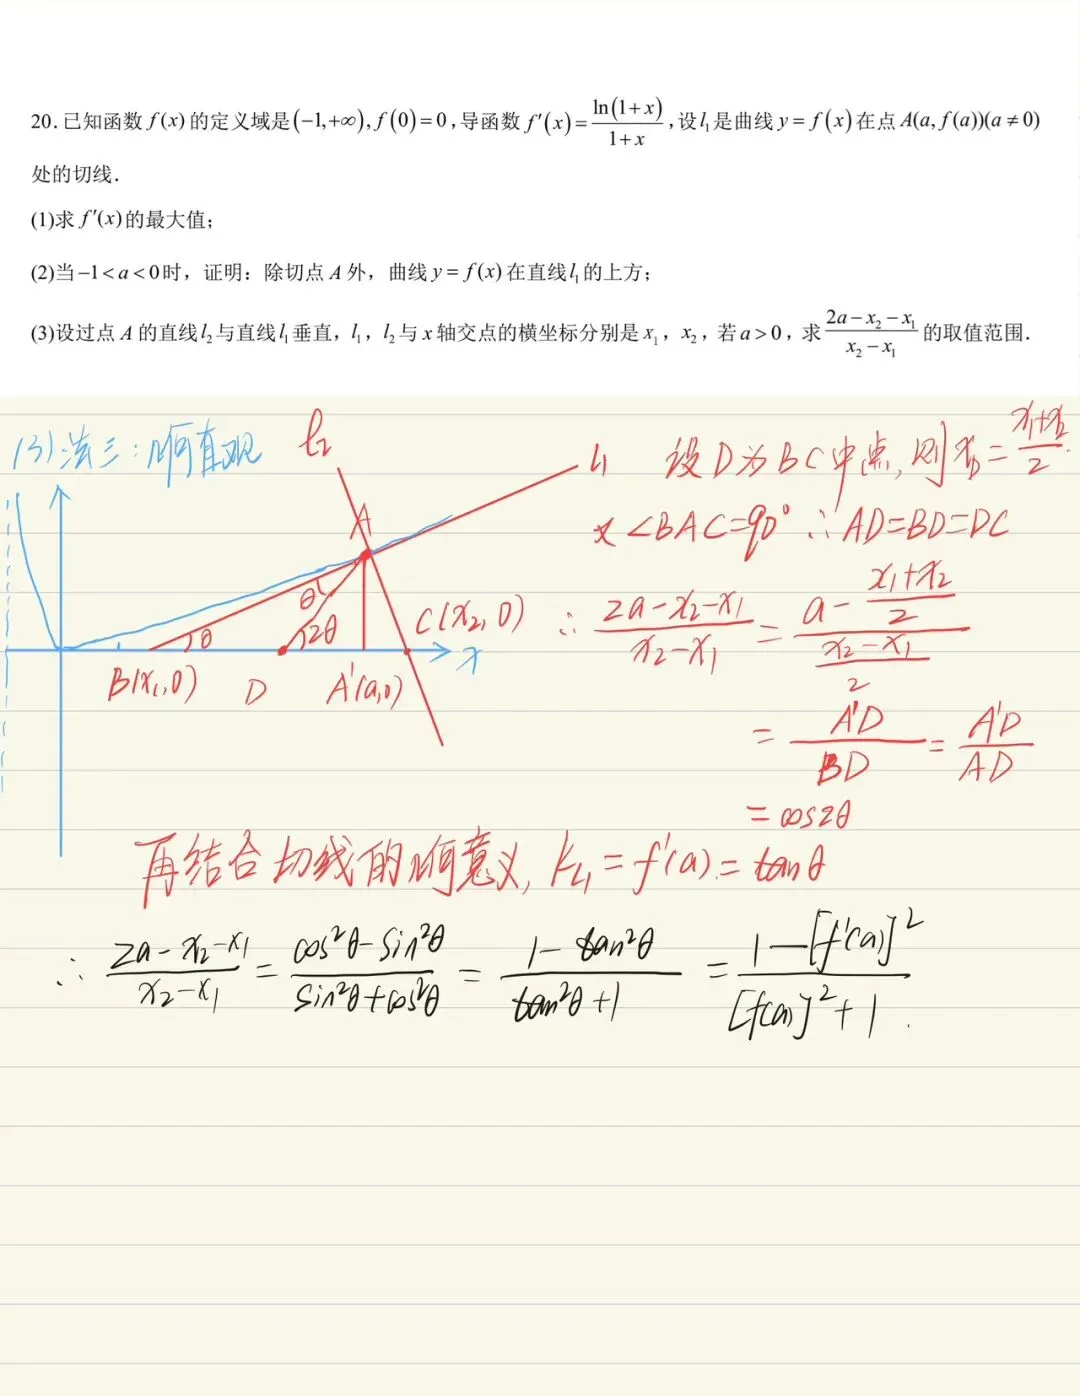 20.已知函数 f(x) 的定义域是(-1,+∞), f(0)=0, 导函数 f'(x)=ln(1+x)/(1+x), 设 l₁ 是曲线 y=f(x) 在点 A(a,f(a))(a≠0)
处的切线.
(1)求 f'(x) 的最大值;
(2)当 -1<a<0 时，证明：除切点 A 外，曲线 y=f(x) 在直线 l₁ 的上方;
(3)设过点 A 的直线 l₂ 与直线 l₁ 垂直，l₁，l₂ 与 x 轴交点的横坐标分别是 x₁，x₂，若 a>0，求 (2a-x₂-x₁)/(x₂-x₁) 的取值范围.
(3)法三:几何直观
l₂
l₁
A
θ
θ
2θ
C(x₂,0)
x
B(x₁,0)
D
A'(a,0)
设D为BC中点,则x_D=(x₁+x₂)/2.
又∠BAC=90° ∴AD=BD=DC
∴ (2a-x₂-x₁)/(x₂-x₁) = (a-(x₁+x₂)/2)/((x₂-x₁)/2)
= A'D/BD = A'D/AD
= cos2θ
再结合切线的几何意义, k_l₁=f'(a)=tanθ
∴ (2a-x₂-x₁)/(x₂-x₁) = (cos²θ-sin²θ)/(sin²θ+cos²θ) = (1-tan²θ)/(tan²θ+1) = (1-[f'(a)]²)/([f(a)]²+1).